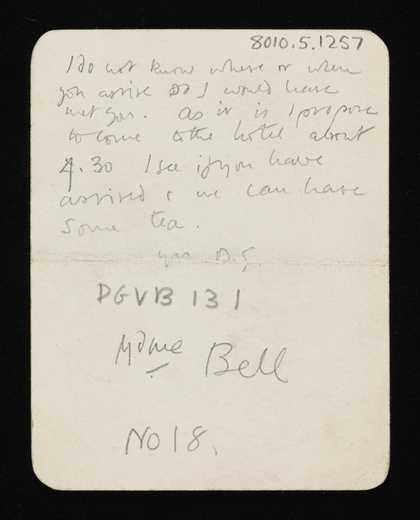 8010.5.1257
I do not know where or when
you arrive or I would have
met you. As it is I propose
to come to the hotel about
4.30 I see if you have
arrived & we can have
some tea.
yrs D.G.
DGVB 131
Mdme Bell
No 18.